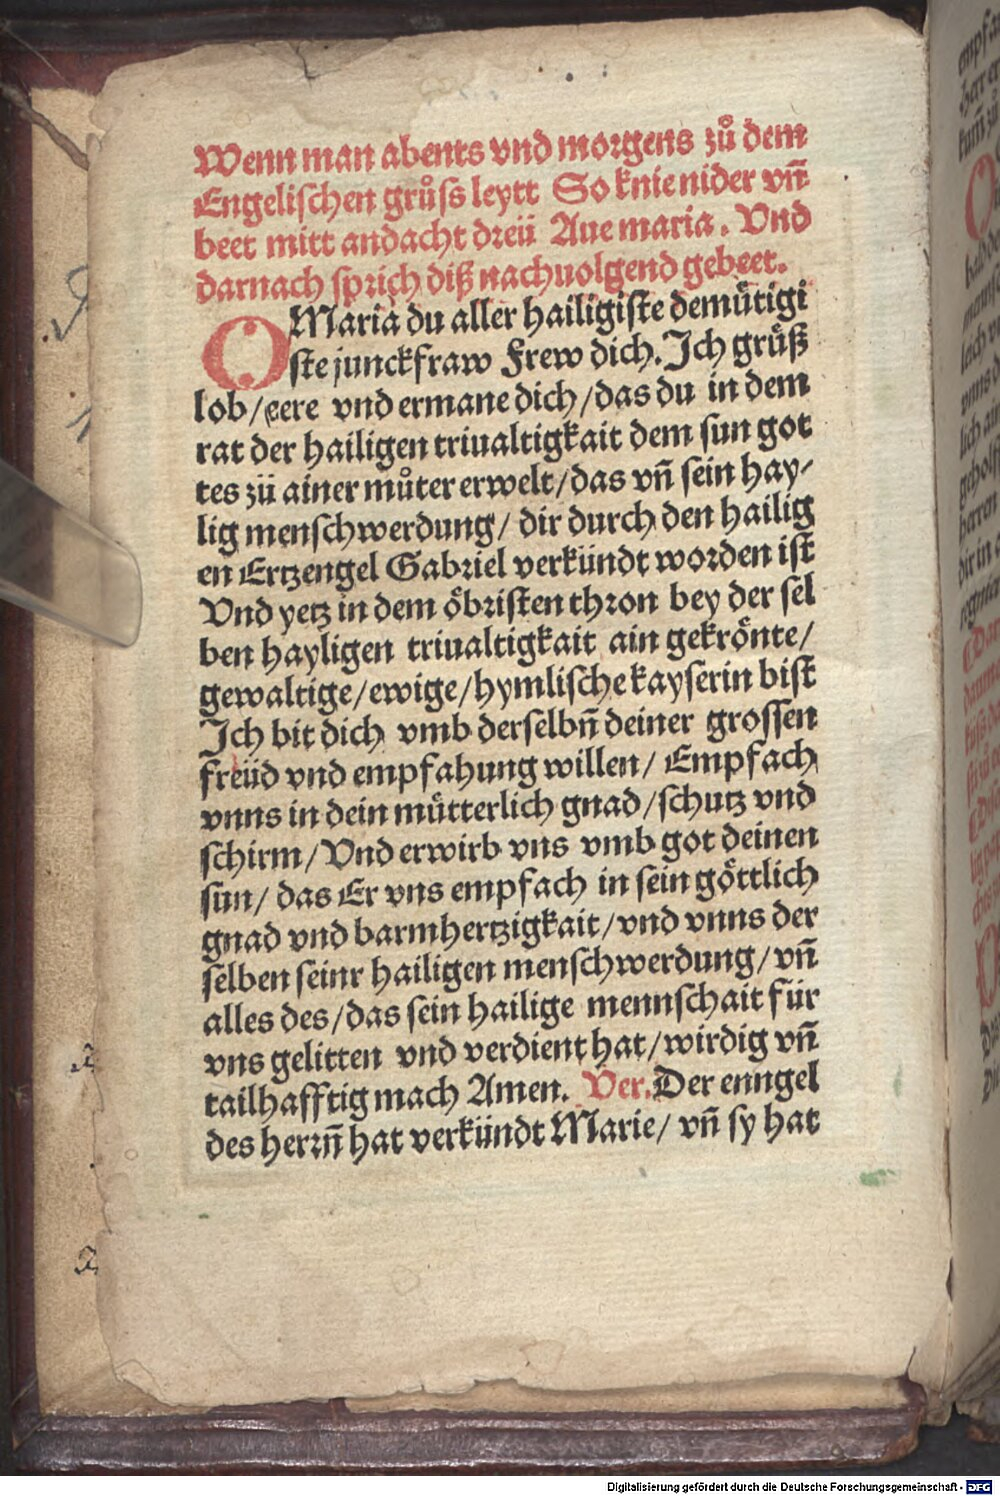 Wenn man abents vnd morgens zů dem
Engelischen grůſs leytt So knie nider vñ
beet mitt andacht dreü Aue maria. Vnd
darnach ſprich diß nachuolgend gebeet.
O Maria du aller hailigiſte demuͤtigi
ſte junckfraw Frew dich. Ich gruͤß
lob/ eere vnd ermane dich/ das du in dem
rat der hailigen triualtigkait dem ſun got
tes zü ainer můter erwelt/ das vñ ſein hay⸗
lig menſchwerdung/ dir durch den hailig
en Ertzengel Gabriel verkündt worden iſt
Vnd yetz in dem oͤbriſten thron bey der ſel
ben hayligen triualtigkait ain gekroͤnte/
gewaltige/ ewige/ hymliſche kayſerin biſt
Ich bit dich vmb derſelbñ deiner groſſen
freüd vnd empfahung willen/ Empfach
vnns in dein muͤtterlich gnad/ ſchutz vnd
ſchirm/ Vnd erwirb vns vmb got deinen
ſun/ das Er vns empfach in ſein goͤttlich
gnad vnd barmhertzigkait/ vnd vnns der
ſelben ſeinr hailigen menſchwerdung/ vñ
alles des/ das ſein hailige mennſchait für
vns gelitten vnd verdient hat/ wirdig vñ
tailhafftig mach Amen. Ver. Der enngel
des herrñ hat verkündt Marie/ vñ ſy hat
Digitalisierung gefördert durch die Deutsche Forschungsgemeinschaft - DFG